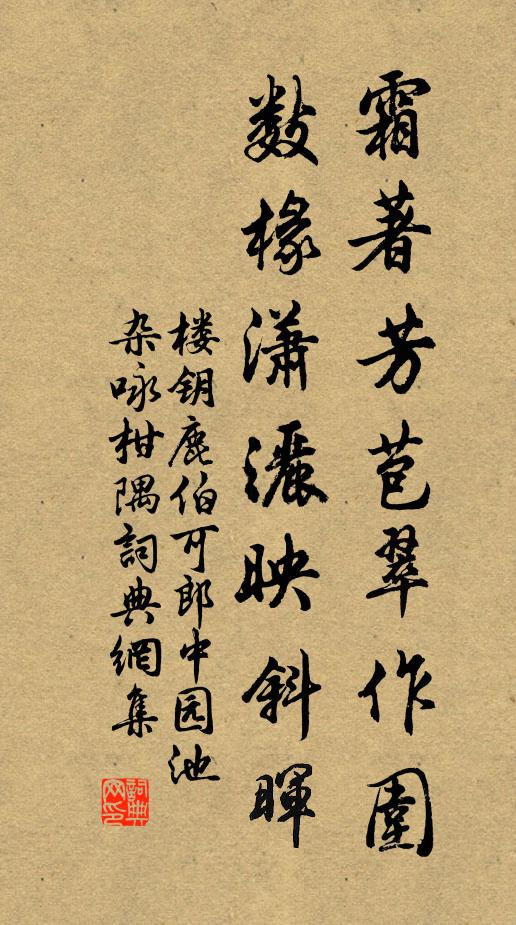 霜著芳苞翠作圍
数椽瀟灑映斜暉
楼钥鹿伯可郎中园池
杂咏柑隅詞典網集
詞典网印